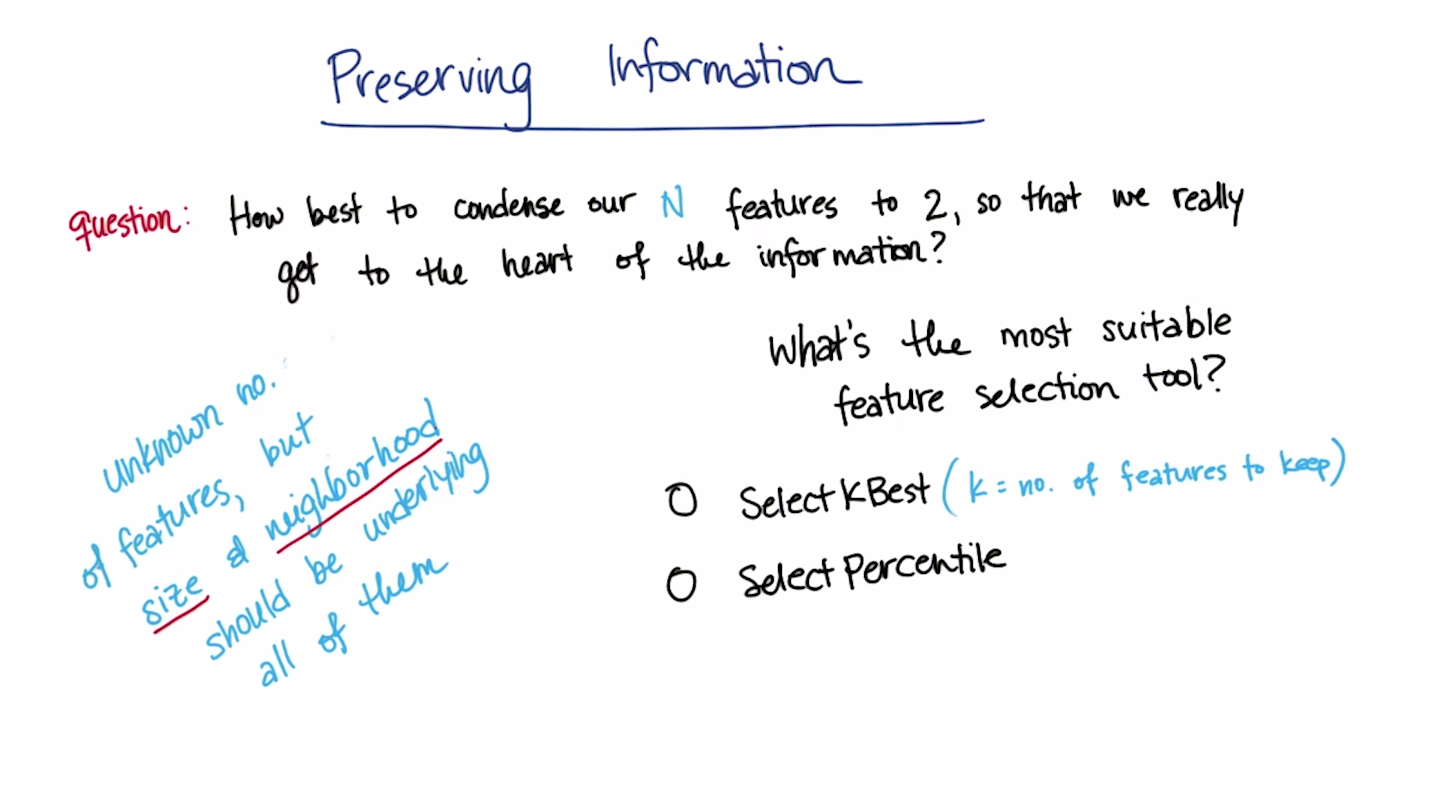 Preserving Information
question: How best to condense our N features to 2, so that we really
get to the heart of the information?
What's the most suitable
feature selection tool?
unknown no.
of features, but
size & neighborhood
should be underlying
all of them
SelectKBest (k = no. of features to keep)
Select Percentile